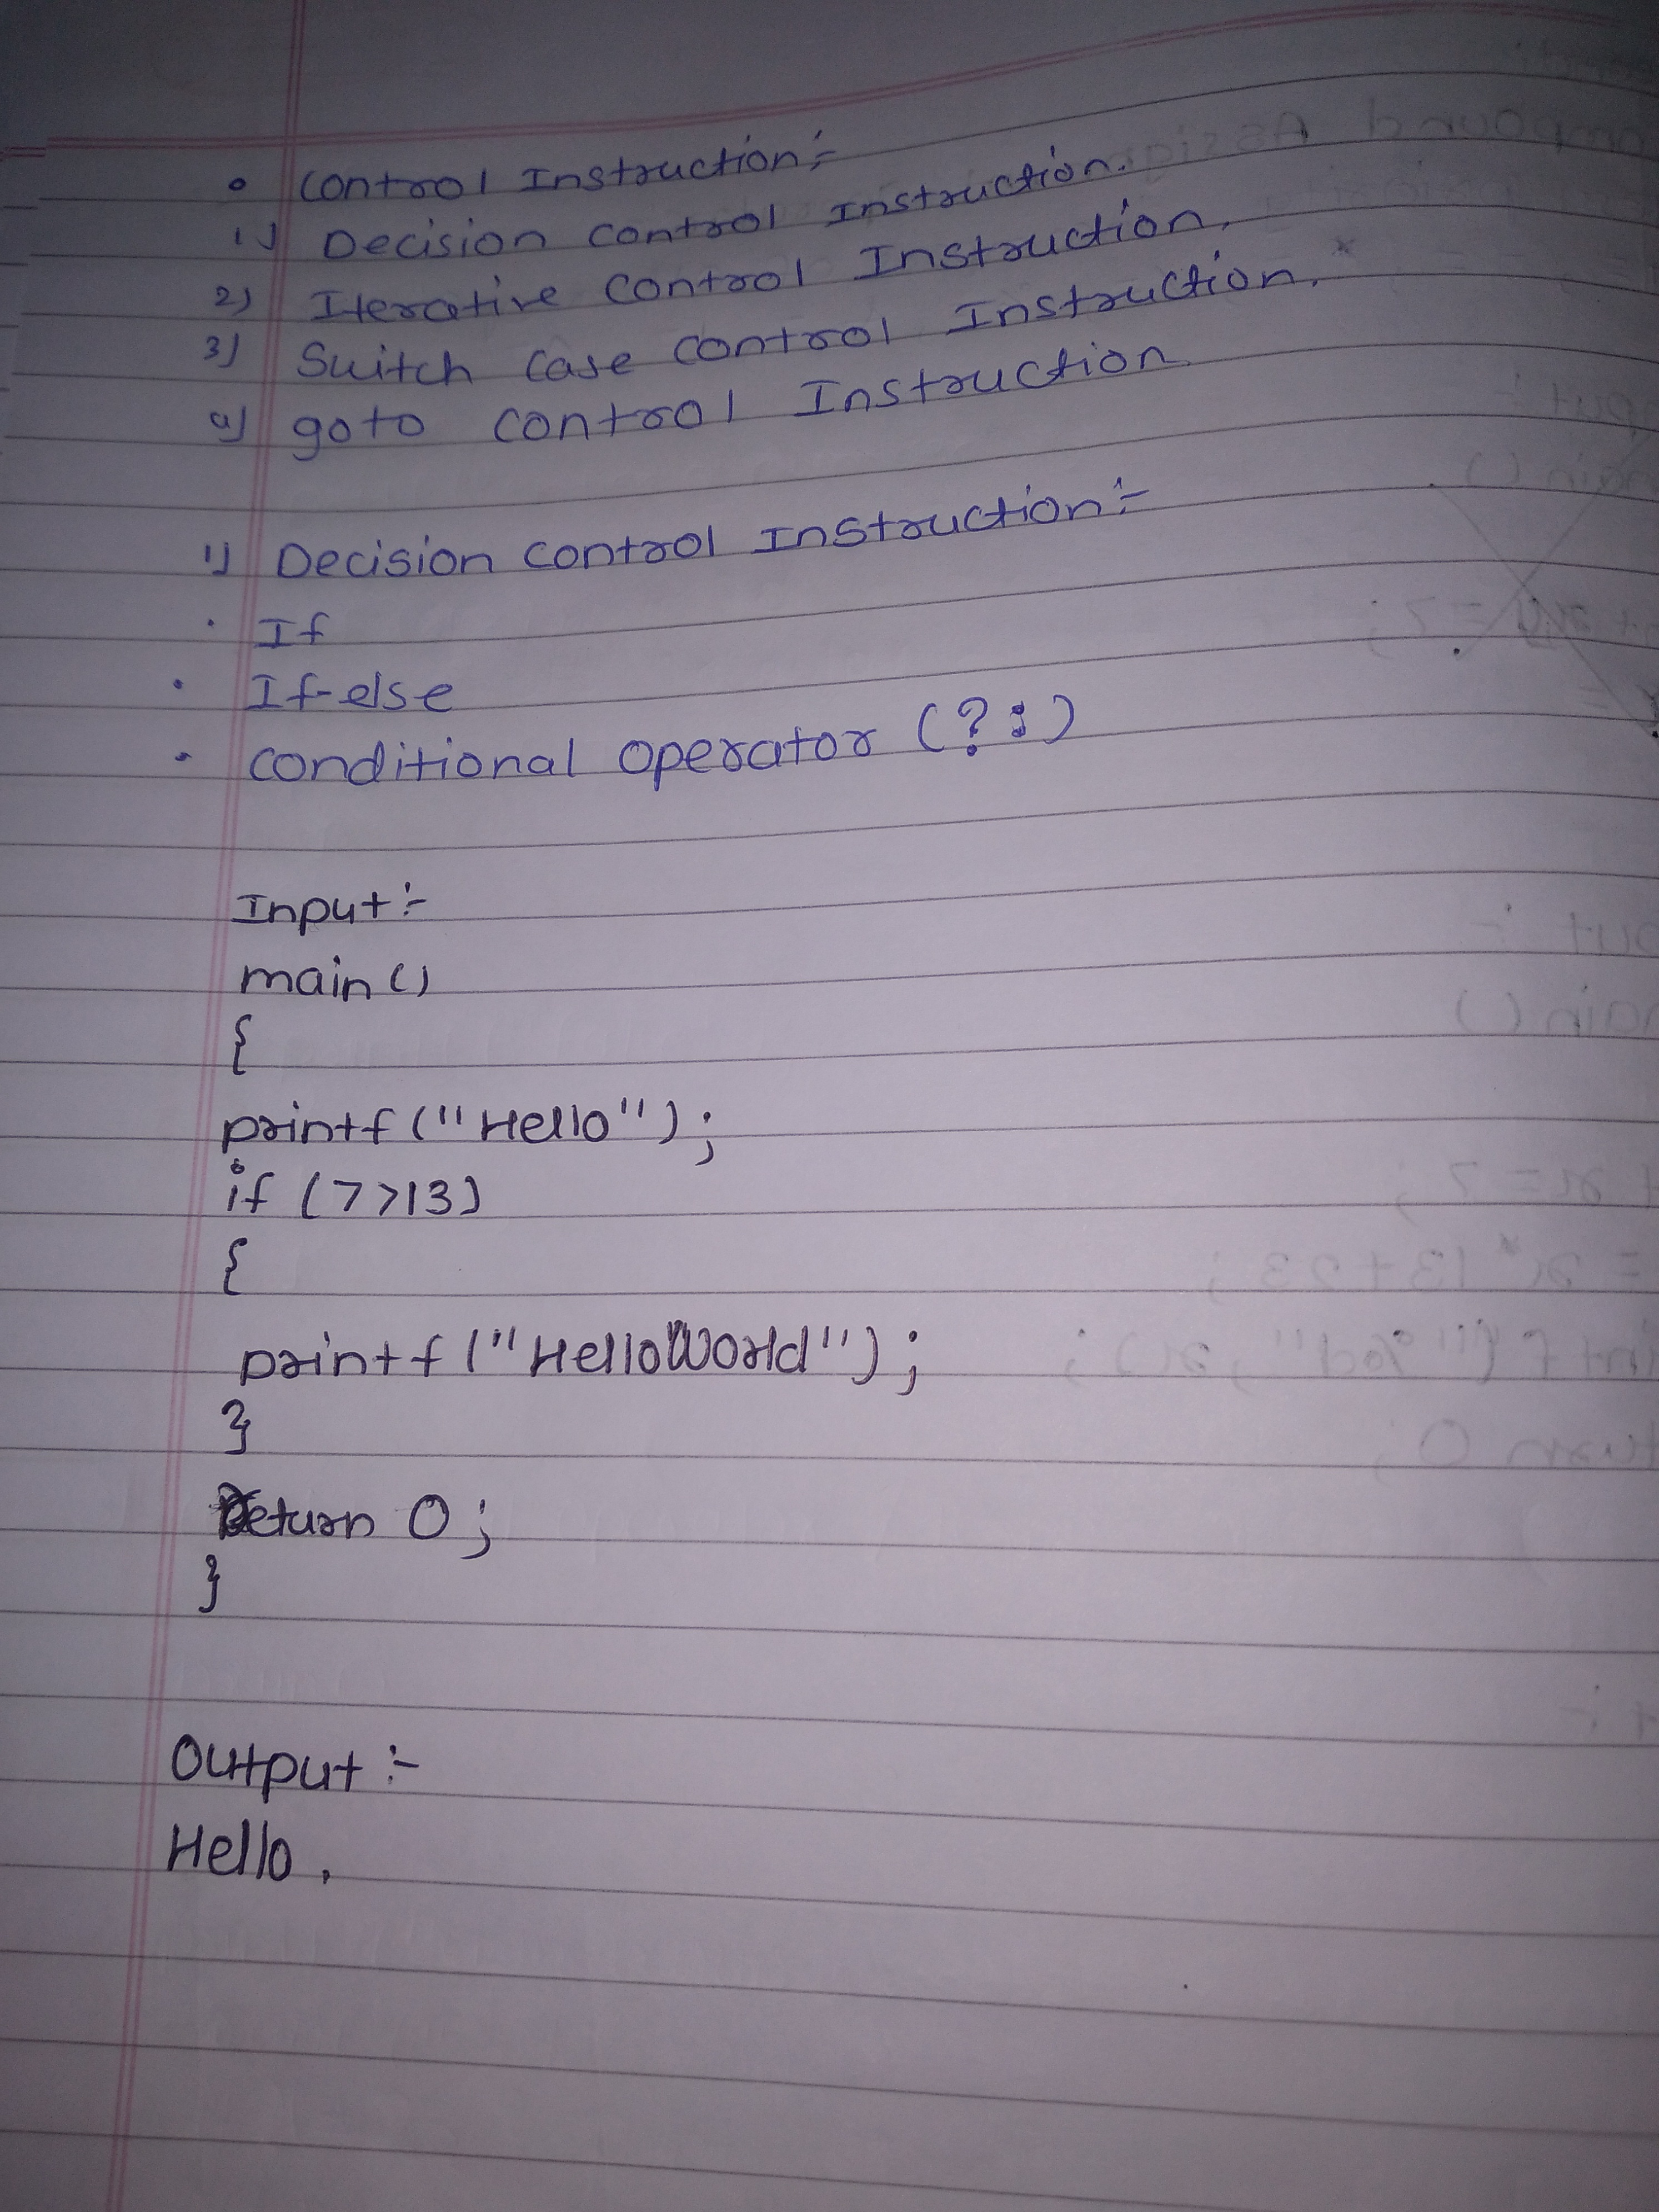 ° Control Instruction:-
1) Decision control Instruction.
2) Iterative Control Instruction.
3) Switch Case Control Instruction.
4) goto control Instruction
1) Decision control Instruction:-
· If
· If-else
· conditional operator (?:)
Input:-
main()
{
printf("Hello");
if (7>13)
{
printf("HelloWorld");
}
Return 0;
}
Output:-
Hello.